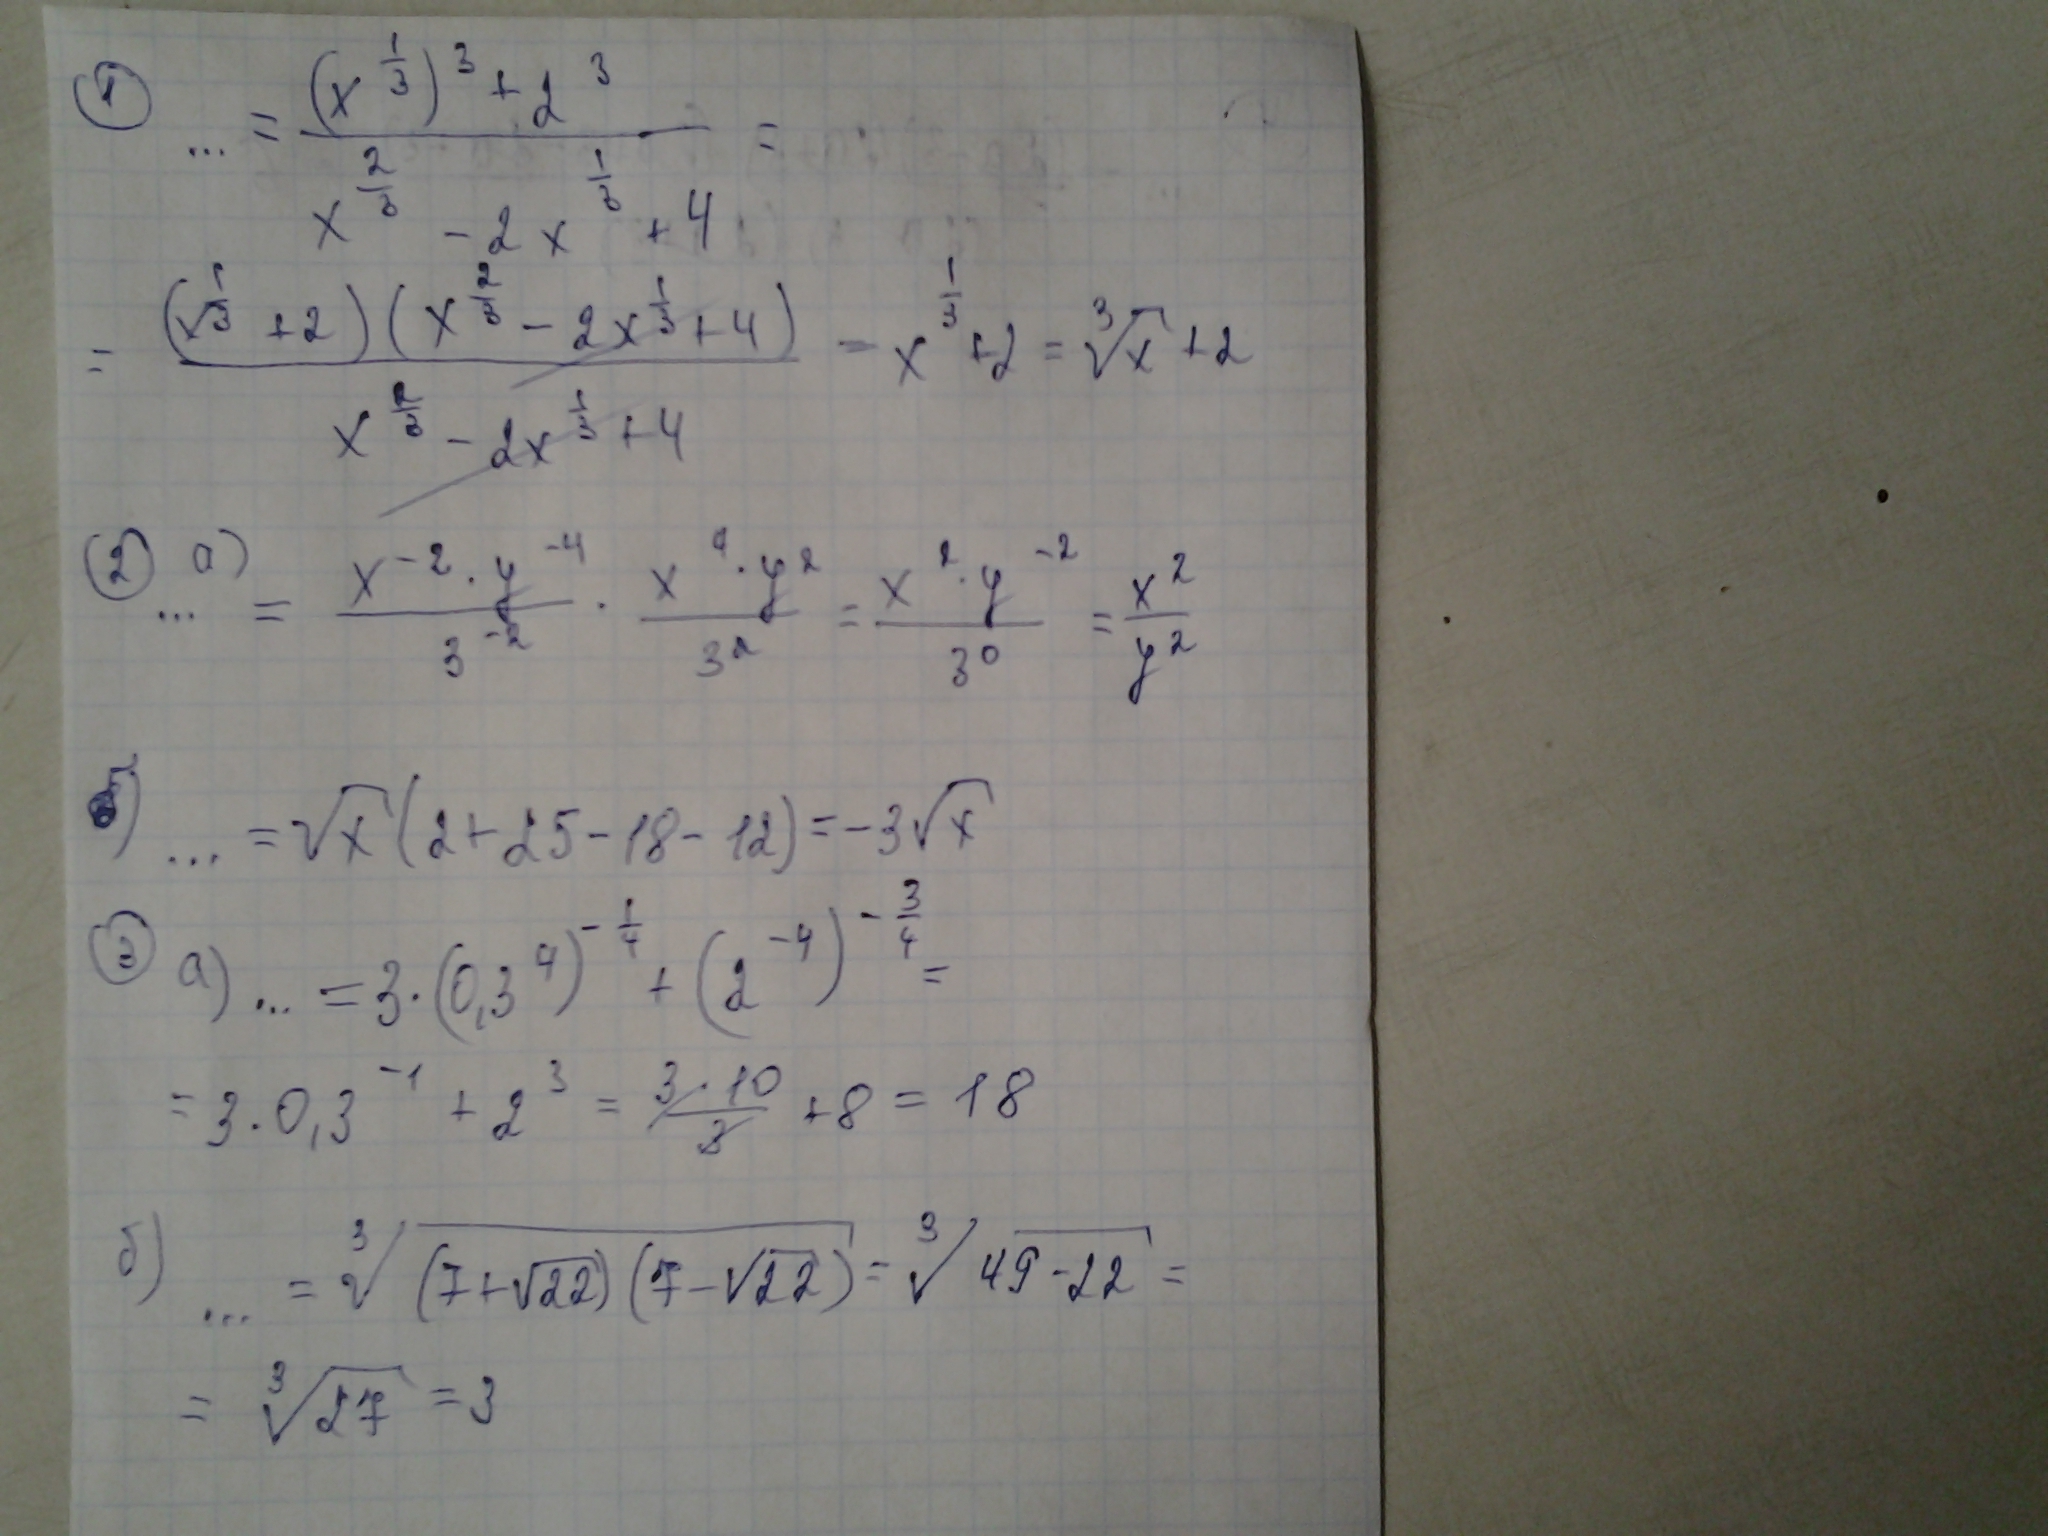 ① ... = ((x^(1/3))^3 + 2^3) / (x^(2/3) - 2x^(1/3) + 4) =
= ((x^(1/3) + 2)(x^(2/3) - 2x^(1/3) + 4)) / (x^(2/3) - 2x^(1/3) + 4) = x^(1/3) + 2 = ∛x + 2
② а) ... = (x^(-2) · y^(-4)) / 3^(-2) · (x^4 · y^2) / 3^2 = (x^2 · y^(-2)) / 3^0 = x^2 / y^2
б) ... = √x (2 + 25 - 18 - 12) = -3√x
③ а) ... = 3 · (0,3^4)^(-1/4) + (2^(-4))^(-3/4) =
= 3 · 0,3^(-1) + 2^3 = (3 · 10) / 3 + 8 = 18
б) ... = ∛((7 + √22)(7 - √22)) = ∛(49 - 22) =
= ∛27 = 3